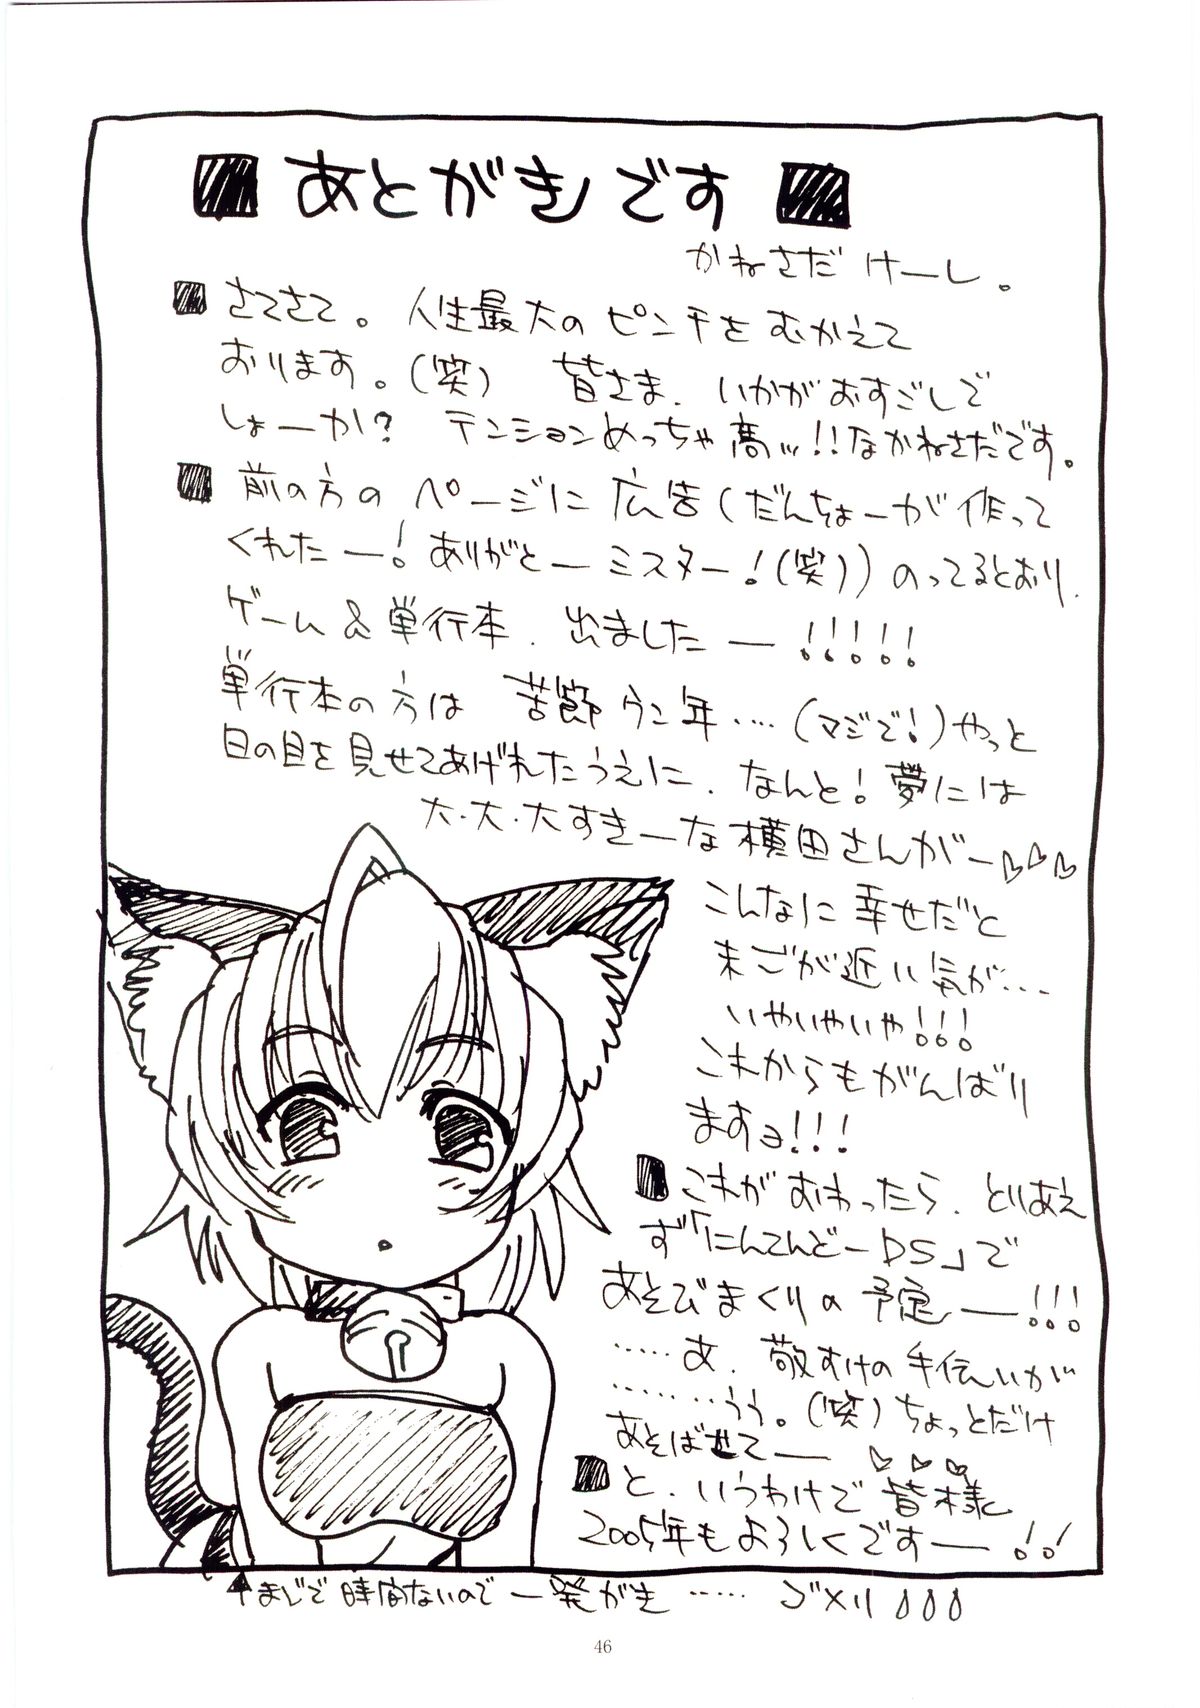 ■ あとがきです ■
かねさだ けーし。
■ さてさて。人生最大のピンチをむかえて
おります。(笑) 皆さま、いかがおすごしで
しょーか? テンションめっちゃ高ッ!!なかねさだです。
■ 前の方のページに広告(だんちょーが作って
くれたー!ありがとーミスター!(笑))のってるとおり、
ゲーム&単行本、出ましたー!!!!!
単行本の方は 苦節ウン年・・・・(マジで!)やっと
日の目を見せてあげれたうえに、なんと!夢には
大・大・大すきーな横田さんがー♡♡♡
こんなに幸せだと
まごが近い気が・・・
いやいやいや!!!
これからもがんばり
ますョ!!!
■ これがおわったら、とりあえ
ず「にんてんどーDS」で
あそびまくりの予定ー!!!
・・・・・あ、敬すけの手伝いが
・・・・・・・うう。(笑)ちょっとだけ
あそばせてー♡♡♡
■ と、いうわけで皆様
2005年もよろしくですー!!
↑まじで時間ないので一発がき・・・・・ゴメリ
46